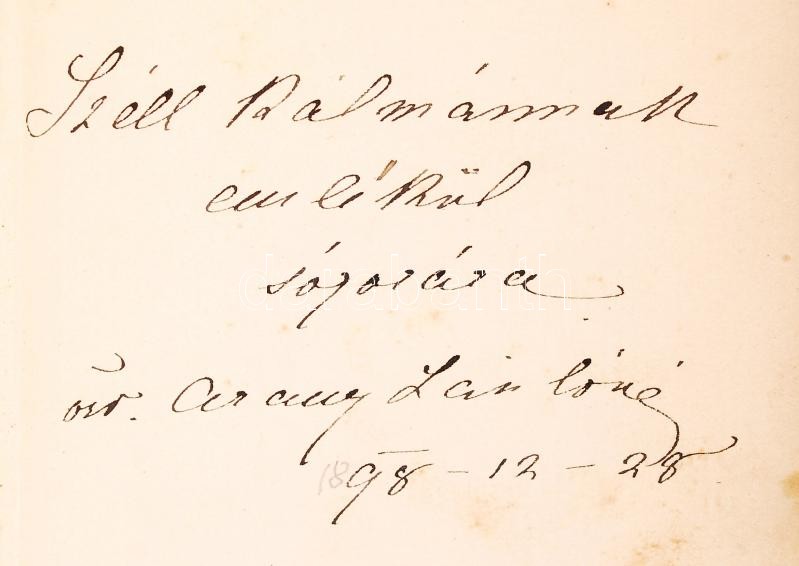 Széll Kálmánnak
emlékül
sógorára
özv. Arany Lászlóné
1898-12-28